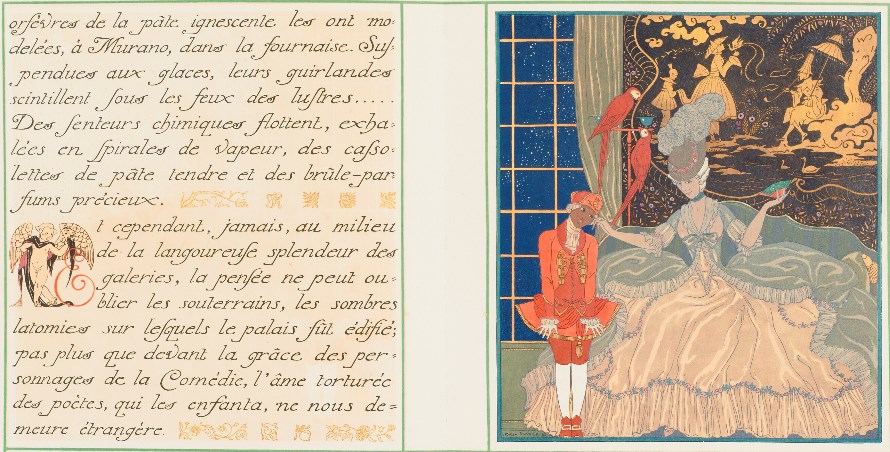 orfèvres de la pâte ignescente les ont mo-
delées, à Murano, dans la fournaise. Suſ-
pendues aux glaces, leurs guirlandes
scintillent ſous les feux des luſtres.....
Des ſenteurs chimiques flottent, exha-
lées en ſpirales de vapeur, des caſſo-
lettes de pâte tendre et des brûle-par
fums précieux.
Et cependant, jamais, au milieu
de la langoureuſe splendeur des
galeries, la penſée ne peut ou-
blier les souterrains, les sombres
latomies sur leſquels le palais fût édifié;
pas plus que devant la grâce des per-
sonnages de la Comédie, l'âme torturée
des poètes, qui les enfanta, ne nous de-
meure étrangère.